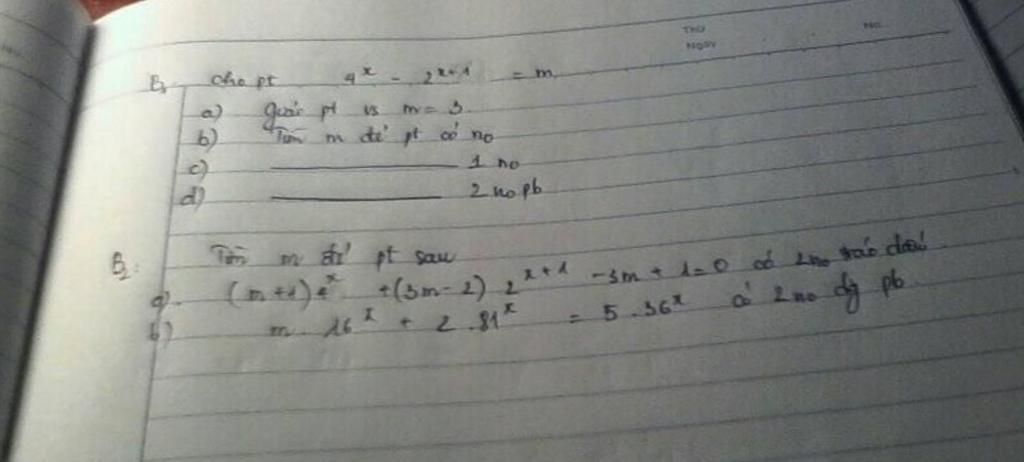 THỨ
NGÀY
No.
B1. Cho pt 4^x - 2^{x+1} = m
a) Giải pt vs m = 3
b) Tìm m để pt có no
c) ———— 1 no
d) ———— 2 no pb
B2: Tìm m để pt sau
a). (m+1)4^x + (3m-2) 2^{x+1} - 3m + 1 = 0 có 2 no trái dấu
b) m. 16^x + 2. 81^x = 5. 36^x có 2 no dg pb.